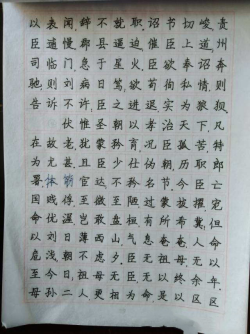 以表闻辞不就职诏书切峻责
臣逋慢郡县逼迫催臣上道州
司临门急于星火臣欲奉诏奔
驰则刘病日笃欲苟徇私情则
告诉不许臣之进退实为狼狈
伏惟圣朝以孝治天下凡
在故老犹蒙矜育况臣孤苦特
为尤甚且臣少仕伪朝历职郎
署本图宦达不矜名节今臣亡
国贱俘至微至陋过蒙拔擢宠
命优渥岂敢盘桓有所希冀但
以刘日薄西山气息奄奄人命
危浅朝不虑夕臣无祖母无以
至今日祖母无臣无以终余年
母孙二人更相为命是以区区